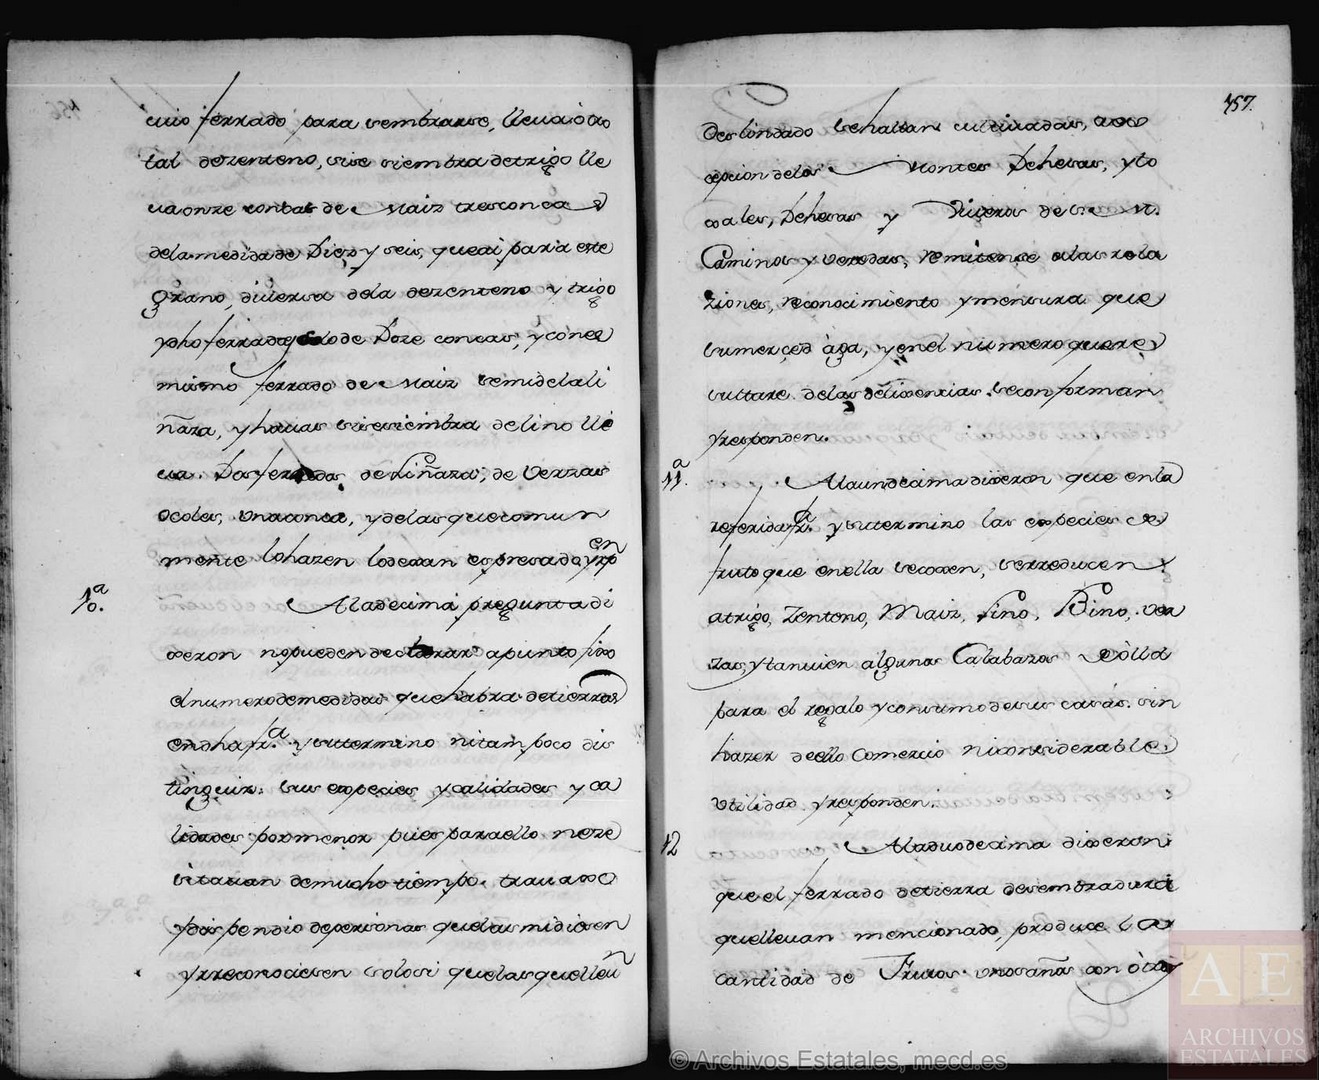 cuio ferrado para sembrarse, lleua otro
tal dezenteno, sise siembra detrigo lle
ua onze concas de Maiz tres concas
dela medida de Diez y seis, que ai para este
Grano, diuersa dela dezenteno y trigo
ydho ferrado solo de Doze concas, y con el
mismo ferrado de Maiz semidelali
ñaza, y hauas sisesiembra delino lle
ua. Dos ferrados de Liñaza; de Verzas
ocoles, unaconca, ydelas quecomun
mente lo hazen lo dexan espresado, yrp
en
10.ª Ala decima pregunta di
xeron nopueden declarar apunto fixo
elnumero demedidas que habra detierras
endha fr.ª ysutermino nitampoco dis
tinguir. sus especies y calidades y ca
lidades pormenor pues paraello neze
sitauan demucho tiempo. trauaxo
ydispendio depersonas quelas midiesen
yrreconociesen solosi quelas quelleuan
757.
Deslindado sehallan cultiuadas, a ex
cepcion delos Montes Dehesas, yto
xales, Dehesas y Riueras de S. M.
Caminos y veredas, remitense alas rela
ziones, reconocimiento ymensura que
sumerced aga, yenel numero quere
sultare delas delixencias. seconforman
yresponden.
11.ª Ala undecima dixeron que enla
referida fr.ª ysutermino las especies de
fruto que enella secoxen, serreducen
atrigo, Zenteno, Maiz, Lino, Bino, ver
zas, ytanuien algunas Calabazas Zeòlla
para el regalo yconsumo desus casas. sin
hazer deello Comercio niconsiderable.
vtilidad yresponden.
12 Ala duodecima dixeron
que el ferrado detierra desembradura
quelleuan mencionado, produce la
cantidad de Frutos unosaños con òtros
AE
ARCHIVOS
ESTATALES
© Archivos Estatales, mecd.es